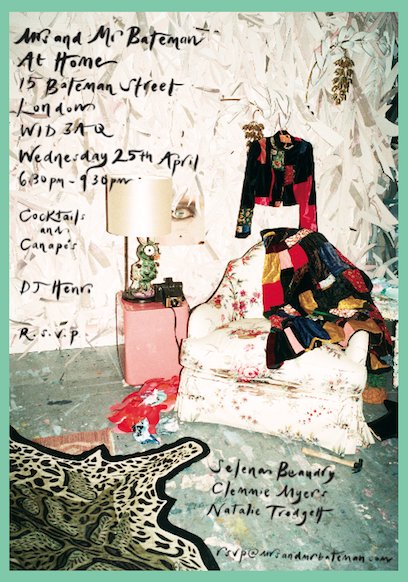 Mrs and Mr Bateman
At Home
15 Bateman Street
London
W1D 3AQ
Wednesday 25th April
6:30pm - 9:30pm
Cocktails
and
Canapés
DJ Henri
R.s.v.p
Selena Beaudry
Clemmie Myers
Natalie Trodgett
rsvp@mrsandmrbateman.com